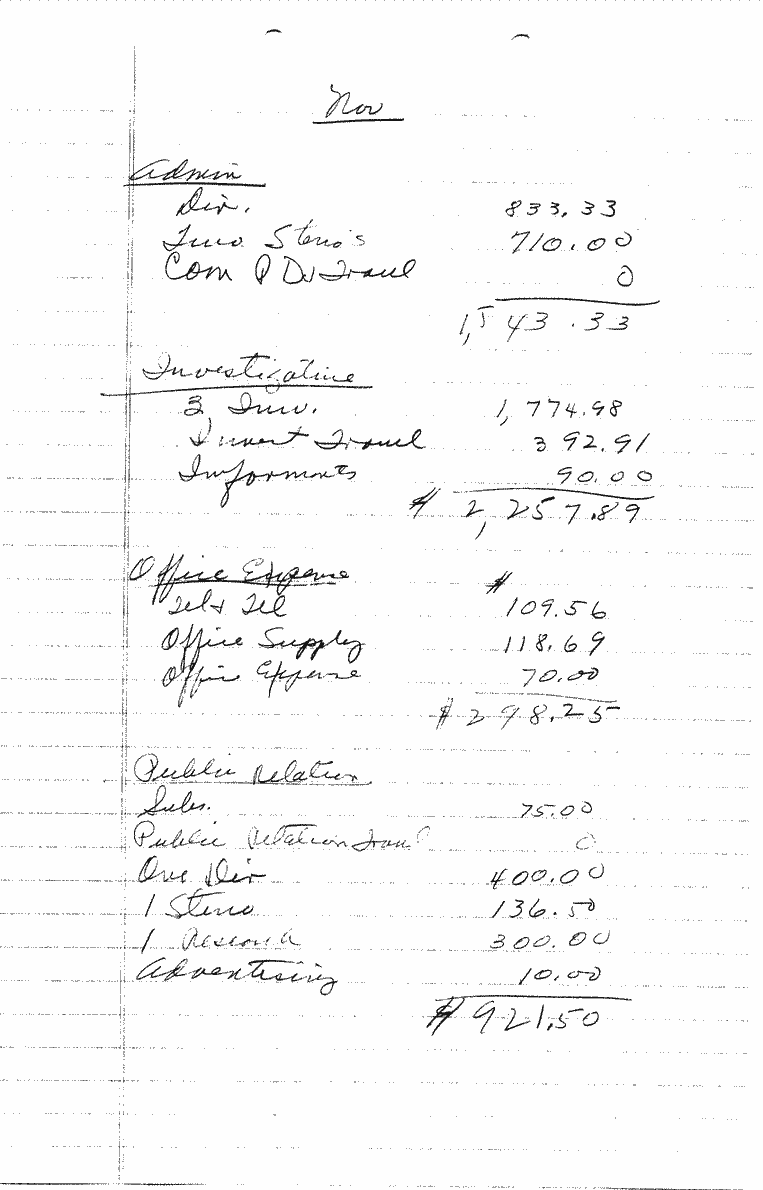 Nov
Admin
Dir. 833.33
Two Steno's 710.00
Com & Dir Travel 0
1,543.33
Investigative
3 Inv. 1,774.98
Invest Travel 392.91
Informants 90.00
$ 2,257.89
Office Expense $
Tel & Tel 109.56
Office Supply 118.69
Office Expense 70.00
$ 298.25
Public Relation
Subs. 75.00
Public Relation Travl 0
One Dir 400.00
1 Steno 136.50
1 Research 300.00
Advertising 10.00
$ 921.50